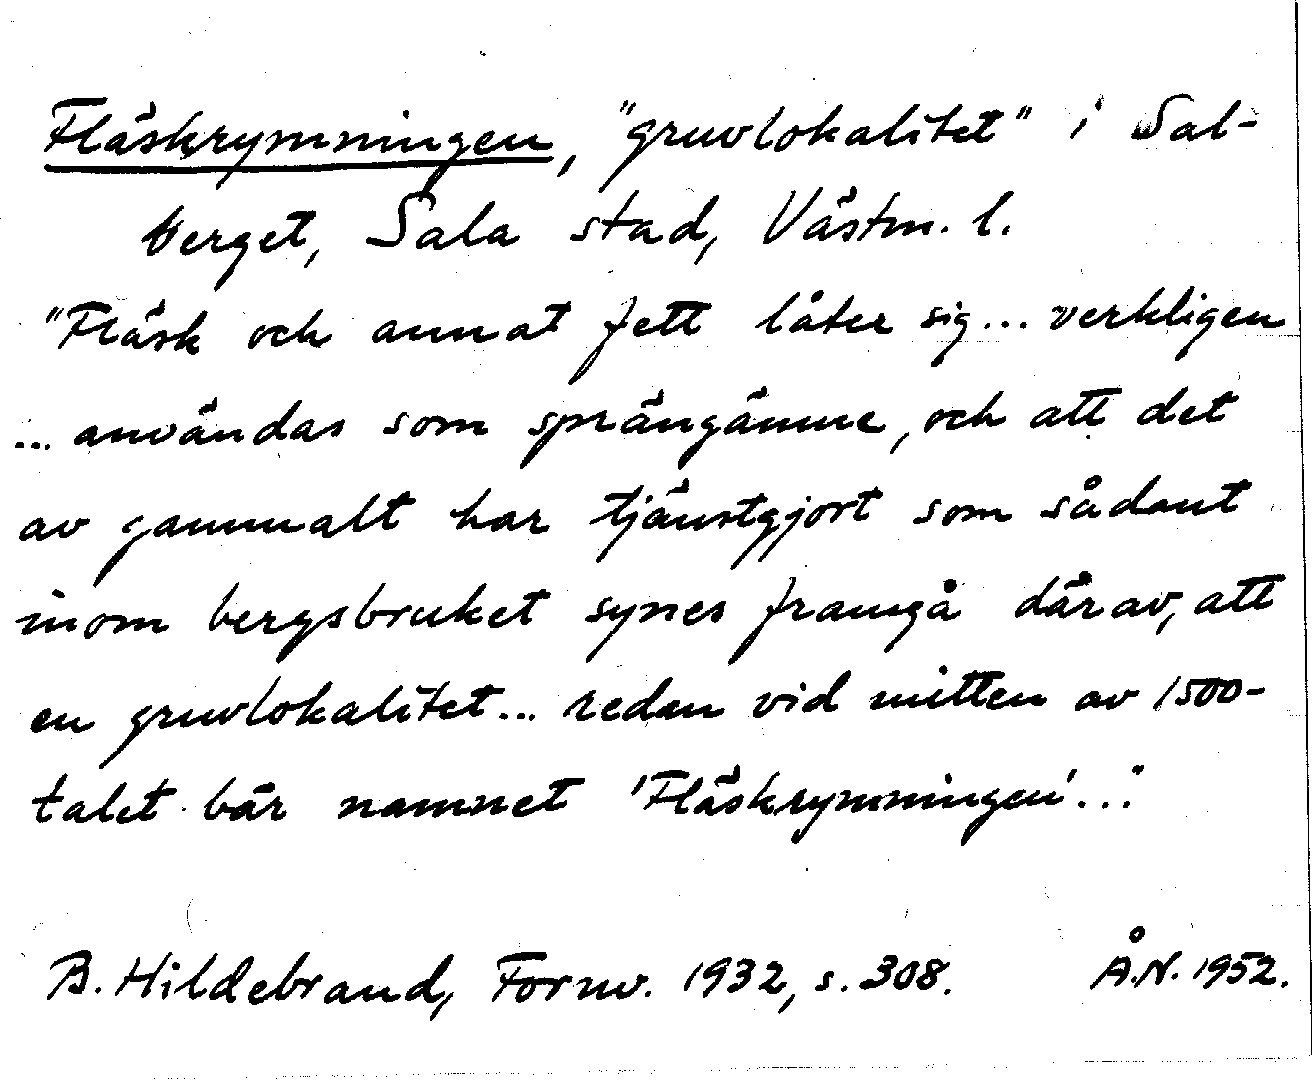 Fläskrymningen, "gruvlokalitet" i Sal-
berget, Sala stad, Västm. l.
"Fläsk och annat fett låter sig... verkligen
... användas som sprängämne, och att det
av gammalt har tjänstgjort som sådant
inom bergsbruket synes framgå därav, att
en gruvlokalitet... redan vid mitten av 1500-
talet bär namnet 'Fläskrymningen'..."
B. Hildebrand, Fornv. 1932, s. 308. Å.N. 1952.